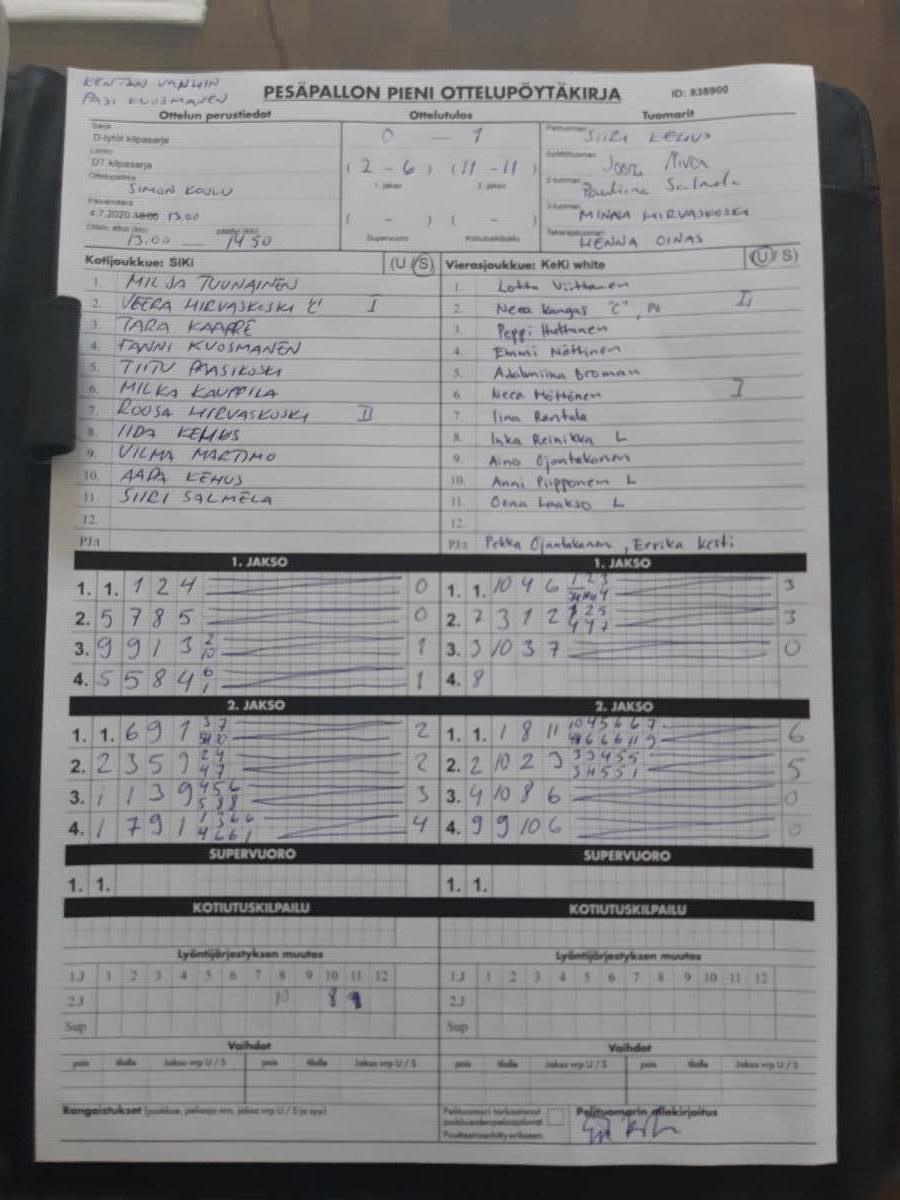 KENTÄN VANHIN
PASI KUOSMANEN
PESÄPALLON PIENI OTTELUPÖYTÄKIRJA ID: 838900
Ottelun perustiedot Ottelutulos Tuomarit
Sarja
D-tytöt kilpasarja 0 – 1 Pelituomari SIIRI KEHUS
Lohko
DT kilpasarja (2 – 6) (11 – 11) Syöttötuomari
Ottelupaikka 1. jakso 2. jakso
SIMON KOULU 2-tuomari Pauliina
Päivämäärä
4.7.2020 18:00 13.00 ( – ) ( – ) 3-tuomari MINNA HIRVASKOSKI
Ottelu alkoi (klo) päättyi (klo) Supervuoro Kotiutuskilpailu Takarajatuomari
13.00 — 1450 HENNA OINAS
Kotijoukkue: SiKi (U / S) Vierasjoukkue: KeKi white (U / S)
1. MILJA TUUNAINEN 1. Lotta Viittanen
2. VEERA HIRVASKOSKI "C" I 2. Neea Kangas "C", II
3. TARA KAARRE 3. Peppi Huttunen
4. FANNI KUOSMANEN 4. Emmi Nättinen
5. TIITU PAASIKOSKI 5. Adalmiina Broman
6. MILKA KAUPPILA 6. Neea Möttönen I
7. ROOSA HIRVASKOSKI II 7. Iina Rantala
8. IIDA KEHUS 8. Inka Reinikka L
9. VILMA MARTIMO 9. Aino Ojantakanen
10. AADA KEHUS 10. Anni Piipponen L
11. SIIRI SALMELA 11. Oona Laakso L
12. 12.
PJ:t PJ:t Pekka Ojantakanen, Eerika Kesti
1. JAKSO 1. JAKSO
1. 1. 1 2 4 0 1. 1. 10 4 6 3
2. 5 7 8 5 0 2. 7 3 1 2 3
3. 9 9 1 3 1 3. 3 10 3 7 0
4. 5 5 8 4 1 4. 8
2. JAKSO 2. JAKSO
1. 1. 6 9 1 2 1. 1. 1 8 11 6
2. 2 3 5 9 2 2. 2 10 2 3 5
3. 1 1 3 9 3 3. 4 10 8 6 0
4. 1 7 9 1 4 4. 9 9 10 6 0
SUPERVUORO SUPERVUORO
1. 1. 1. 1.
KOTIUTUSKILPAILU KOTIUTUSKILPAILU
Lyöntijärjestyksen muutos Lyöntijärjestyksen muutos
1.J 1 2 3 4 5 6 7 8 9 10 11 12 1.J 1 2 3 4 5 6 7 8 9 10 11 12
2.J 10 8 9 2.J
Sup Sup
Vaihdot Vaihdot
pois tilalle Jakso vrp U / S pois tilalle Jakso vrp U / S pois tilalle Jakso vrp U / S pois tilalle Jakso vrp U / S
Rangaistukset (joukkue, pelaaja nro, jakso vrp U / S ja syy) Pelituomari tarkastanut Pelituomarin allekirjoitus